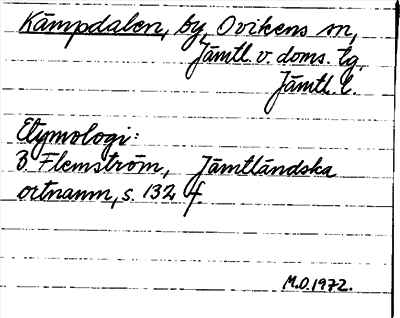 Kämpdalen, by, Ovikens sn,
Jämtl. v. doms. tg,
Jämtl. l.
Etymologi:
B Flemström, Jämtländska
ortnamn, s. 132 f.
M.O.1972.